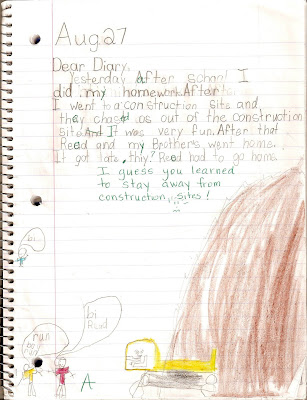 Aug 27
Dear Diary,
Yesterday After school I
did my homework. After
I went to a construction site and
they chased us out of the construction
site. And It was very fun. After that
Reed and my Brothers went home.
It got late, Reed had to go home.
I guess you learned
to stay away from
construction sites!
bi
bi
Read
run
A